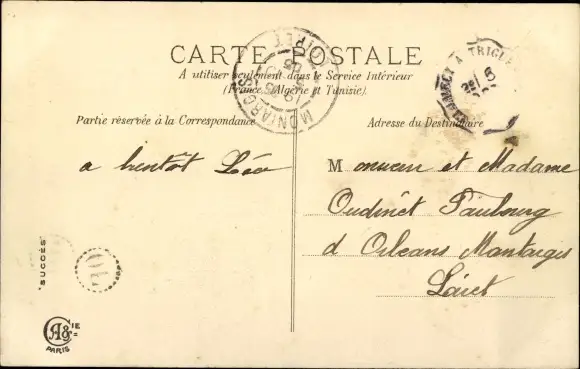 CARTE POSTALE
A utiliser seulement dans le Service Intérieur
(France, Algérie et Tunisie).
MONTARGIS LOIRET
CLAMECY A TRIGU
Partie réservée à la Correspondance
Adresse du Destinataire
a bientôt Léa
Monsieur et Madame
Oudinet Faubourg
d Orleans Montargis
Loiret
SUCCÈS
CA& IE
PARIS